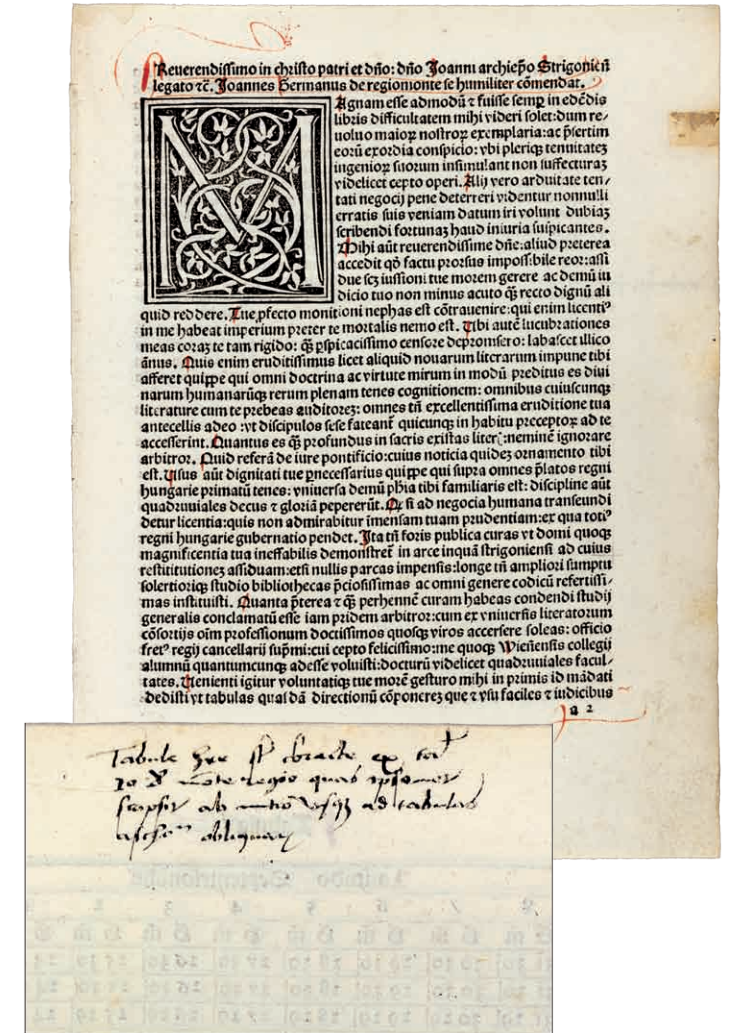 Reuerendissimo in christo patri et dño: dño Joanni archiepõ Strigonieñ
legato ⁊c̃. Joannes Germanus de regiomonte se humiliter cõmendat.
Agnam esse admodũ ⁊ fuisse semꝑ in edẽdis
libris difficultatem mihi videri solet: dum re/
uoluo maioꝝ nostroꝝ exemplaria: ac p̃sertim
eorũ exordia conspicio: vbi pleriqꝫ tenuitateꝫ
ingenioꝝ suorum insimulant non suffecturaꝫ
videlicet cepto operi. Alij vero arduitate ten/
tati negocij pene deterreri videntur nonnulli
erratis suis veniam datum iri volunt dubiaꝫ
scribendi fortunaꝫ haud iniuria suspicantes.
Mihi aũt reuerendissime dñe: aliud preterea
accedit qõ factu prorsus impossibile reor: assi
due scꝫ iussioni tue morem gerere ac demũ iu
dicio tuo non minus acuto q̃ꝫ recto dignũ ali
quid reddere. Tue ꝓfecto monitioni nephas est cõtrauenire: qui enim licentiꝰ
in me habeat imperium preter te mortalis nemo est. Tibi autẽ lucubrationes
meas coraꝫ te tam rigido: q̃ꝫ ꝑspicacissimo censore depromsero: labascet illico
ãnus. Quis enim eruditissimus licet aliquid nouarum literarum impune tibi
afferet quippe qui omni doctrina ac virtute mirum in modũ preditus es diui
narum humanarũqꝫ rerum plenam tenes cognitionem: omnibus cuiuscunqꝫ
literature cum te prebeas auditoreꝫ: omnes tñ excellentissima eruditione tua
antecellis adeo: vt discipulos sese fateant̃ quicunqꝫ in habitu preceptoꝝ ad te
accesserint. Quantus es q̃ꝫ profundus in sacris existas liter: neminẽ ignorare
arbitror. Quid referã de iure pontificio: cuius noticia quideꝫ ornamento tibi
est. Usus aũt dignitati tue p̱necessarius quippe qui supra omnes p̃latos regni
hungarie primatũ tenes: vniuersa demũ phĩa tibi familiaris est: discipline aũt
quadruuiales decus ⁊ gloriã pepererũt. Qꝫ si ad negocia humana transeundi
detur licentia: quis non admirabitur ĩmensam tuam prudentiam: ex qua totiꝰ
regni hungarie gubernatio pendet. Ita tñ foris publica curas vt domi quoqꝫ
magnificentia tua ineffabilis demonstret̃ in arce inquã strigoniensi ad cuius
restitutioneꝫ assiduam: etsi nullis parcas impensis: longe tñ ampliori sumptu
solertioriqꝫ studio bibliothecas p̃ciosissimas ac omni genere codicũ refertissi/
mas instituisti. Quanta p̃terea ⁊ q̃ꝫ perhennẽ curam habeas condendi studij
generalis conclamatũ esse iam pridem arbitror: cum ex vniuersis literatorum
cõsortijs oĩm professionum doctissimos quosqꝫ viros accersere soleas: officio
fretꝰ regij cancellarij sup̃mi: cui cepto felicissimo: me quoqꝫ Wieñensis collegij
alumnũ quantumcunqꝫ adesse voluisti: docturũ videlicet quadruuiales facul/
tates. Uenienti igitur voluntatiqꝫ tue morẽ gesturo mihi in primis id mãdati
dedisti vt tabulas quasdã directionũ cõponereꝫ que ⁊ vsu faciles ⁊ iudicibus
a 2
Tabule hee st̃ abstracte ex
Io de mõte regio quas ipsemet
scripsit ab initio usqꝫ ad tabulas
obliquaꝝ